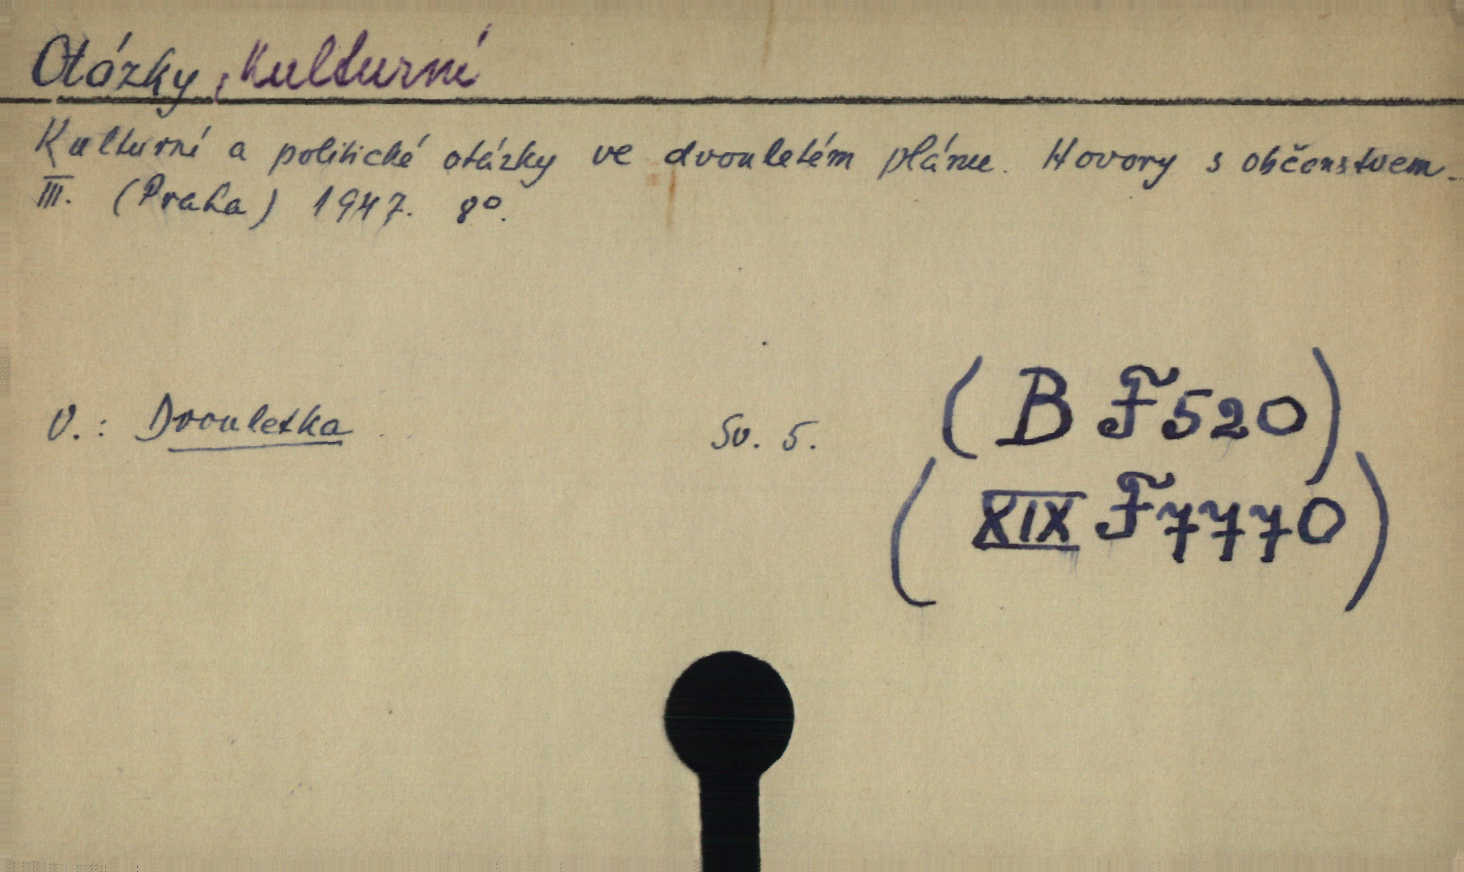 Otázky, Kulturní
Kulturní a politické otázky ve dvouletém plánu. Hovory s občanstvem.
III. (Praha) 1947. 8°.
V.: Dvouletka Sv. 5. (B F 520)
(XIX F 7770)